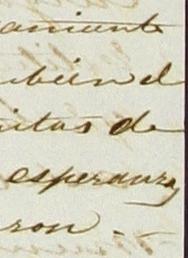 amiento
mbien el
nitas de
esperanza
ron.